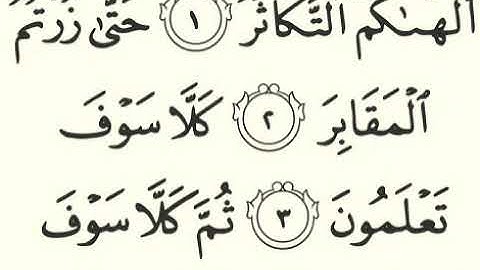 أَلْهَىٰكُمُ ٱلتَّكَاثُرُ ١ حَتَّىٰ زُرْتُمُ
ٱلْمَقَابِرَ ٢ كَلَّا سَوْفَ
تَعْلَمُونَ ٣ ثُمَّ كَلَّا سَوْفَ